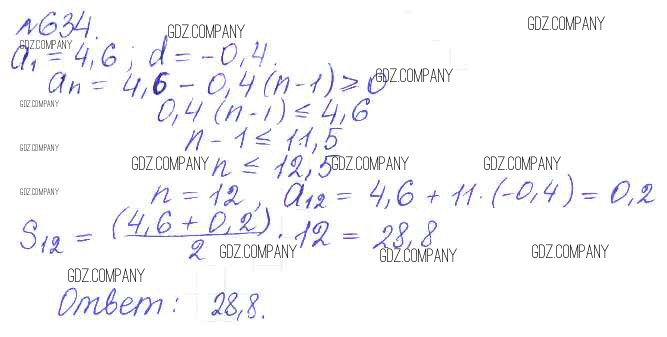 №634.
GDZ.COMPANY GDZ.COMPANY
GDZ.COMPANY
a₁ = 4,6 ; d = -0,4.
aₙ = 4,6 - 0,4 (n-1) ⩾ 0
GDZ.COMPANY
GDZ.COMPANY
0,4 (n-1) ≤ 4,6
n - 1 ≤ 11,5
GDZ.COMPANY
n ≤ 12,5
GDZ.COMPANY GDZ.COMPANY GDZ.COMPANY
GDZ.COMPANY
n = 12, a₁₂ = 4,6 + 11·(-0,4) = 0,2
S₁₂ = (4,6 + 0,2)/2 · 12 = 28,8
GDZ.COMPANY GDZ.COMPANY GDZ.COMPANY
GDZ.COMPANY
Ответ: 28,8.